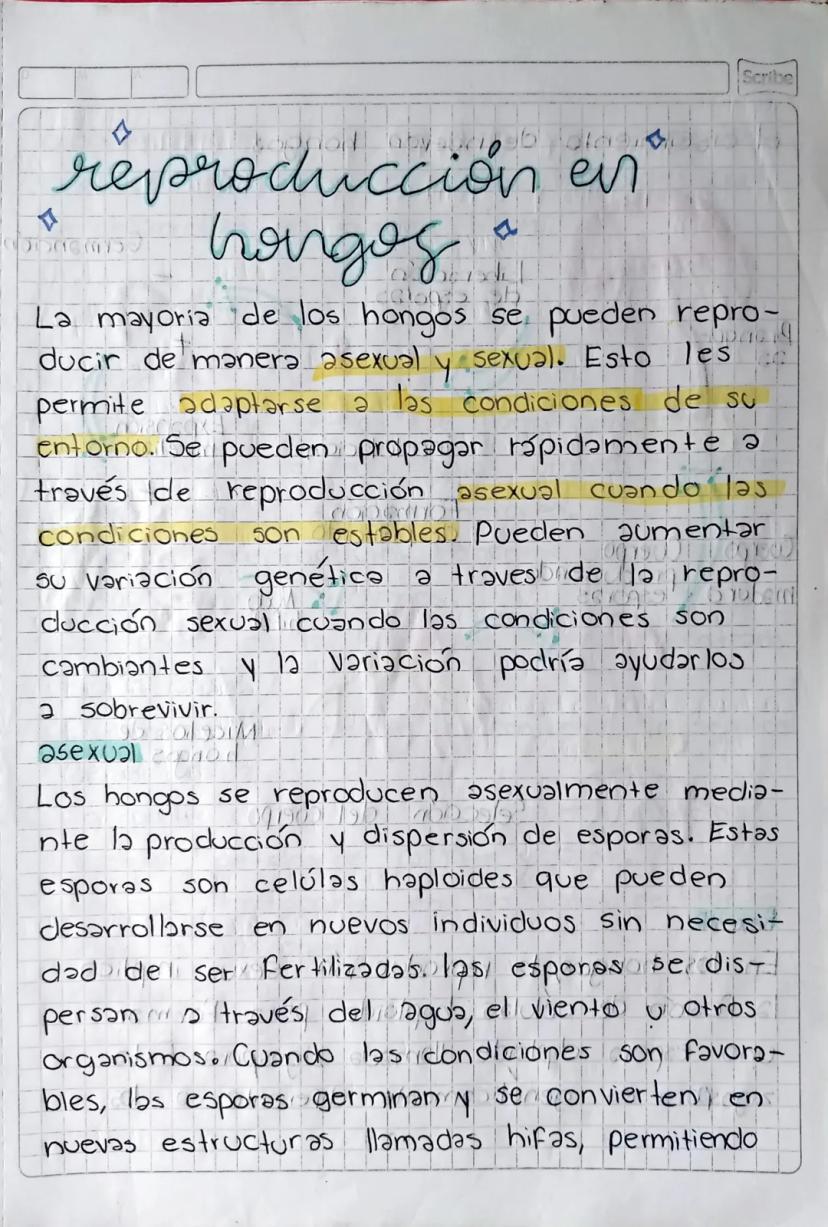 Scribe
reproducción en
hongos
La mayoria de los hongos se pueden repro-
ducir de manera asexual y sexual. Esto les
permite adaptarse a las condiciones de su
entorno. Se pueden propagar rápidamente a
través de reproducción asexual cuando las
condiciones son estables. Pueden aumentar
su variación genética a traves de la repro-
ducción sexual cuando las condiciones son
cambiantes y la variación podría ayudarlos
a sobrevivir.
asexual
Los hongos se reproducen asexualmente media-
nte la producción y dispersión de esporas. Estas
esporas son celúlas haploides que pueden
desarrollarse en nuevos individuos sin necesi-
dad de ser fertilizadas. las esporas se dis-
persan a través del agua, el viento u otros
organismos. Cuando las condiciones son favora-
bles, las esporas germinan y se convierten en
nuevas estructuras llamadas hifas, permitiendo